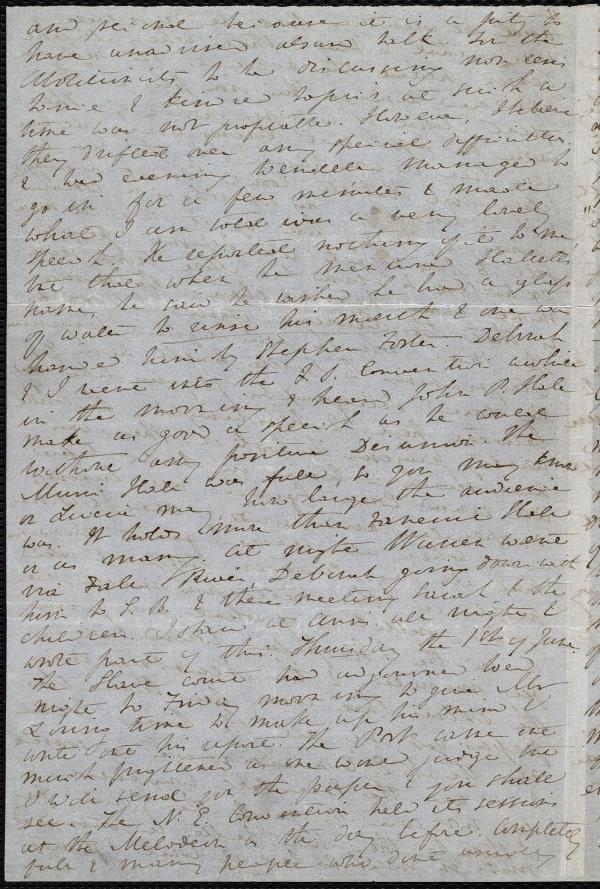 and period because it is a pity to
have unadvised absurd talk for the
Abolitionists to be discussing non resis
tance & kindred topics at such a
time was not profitable. However, I believe
they drifted over any special difficulties.
& Wed evening Wendell managed to
go in for a few minutes & made
what I am told was a very lovely
speech. He reported nothing of it to me,
but that when he mentioned Halletts
name, he said he wished he had a glass
of water to rinse his mouth & one was
handed him by Stephen Foster. Deborah
& I went into the F. S. Convention awhile
in the morning & heard John P. Hale
make as good a speech as he could
without any positive Disunion. The
Music Hall was full, so you may know
or Lucia may, how large the audience
was. It holds more than Faneuil Hall
or as many. At night Warren went
via Fall River, Deborah going down with
him to S. B. & there meeting Sarah & the
children. I staid at Anns all night &
wrote part of this. Thursday the 1st of June.
The Slave court had adjourned Wed
night to Friday morning to give Mr
Loring time to make up his mind &
write out his report. The Post came out
much frightened as one would judge one
I will send for the paper & you shall
see. The N. E. Convention held its sessions
at the Melodeon as the day before. Completely
full & many people who dont usually